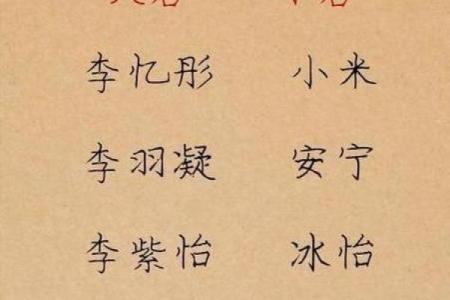 李忆彤 小米
李羽凝 安宁
李紫怡 冰怡